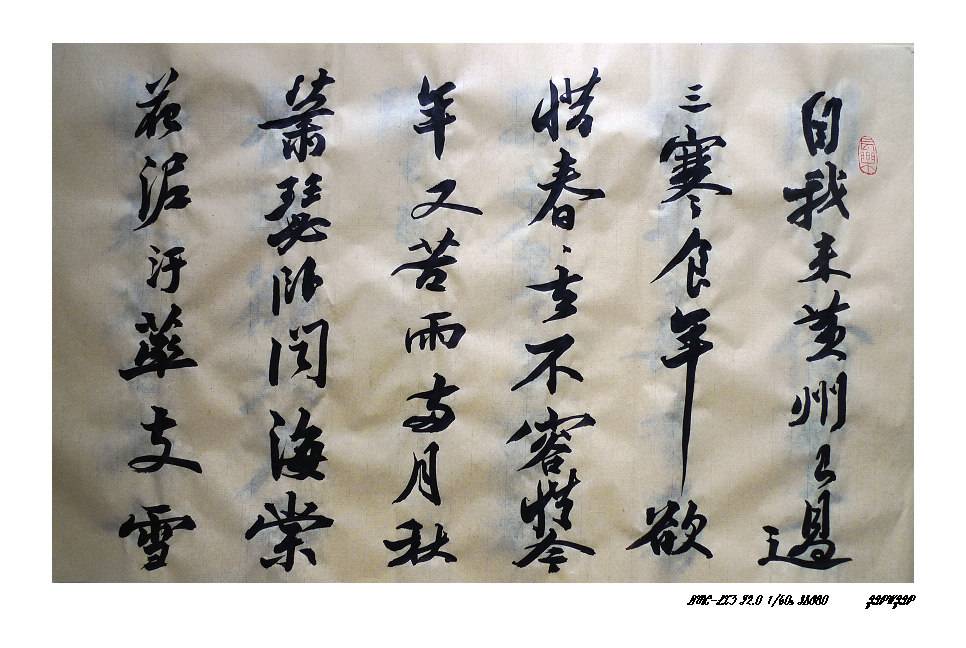 自我来黄州已過
三寒食年欲
惜春々去不容惜今
年又苦雨兩月秋
蕭瑟卧聞海棠
花泥汙燕支雪
DMC-LX3 F2.0 1/60s ISO80